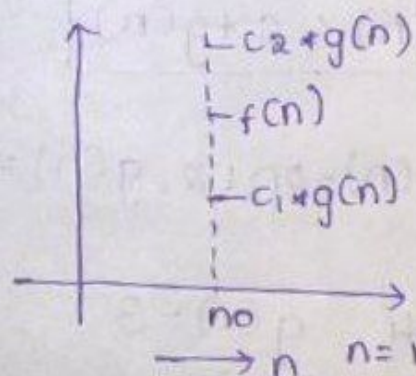 c2*g(n)
f(n)
c1*g(n)
n0
n n=